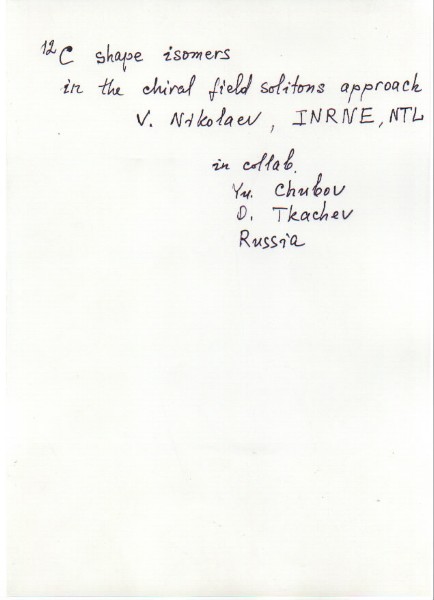 ¹²C shape isomers
in the chiral field solitons approach
V. Nikolaev, INRNE, NTL
in collab.
Yu. Chubov
D. Tkachev
Russia